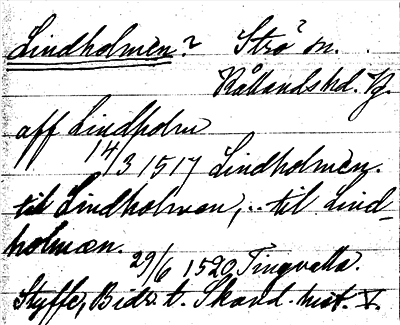 Lindholmen? Strö? sn.
Kållandshd. Vg.
aff Lindholm
14/3 1517 Lindholmen.
till Lindholmen, .. til Lind-
holmæn.
29/6 1520, Tingvalla.
Styffe, Bidr. t. Skand. hist. V.